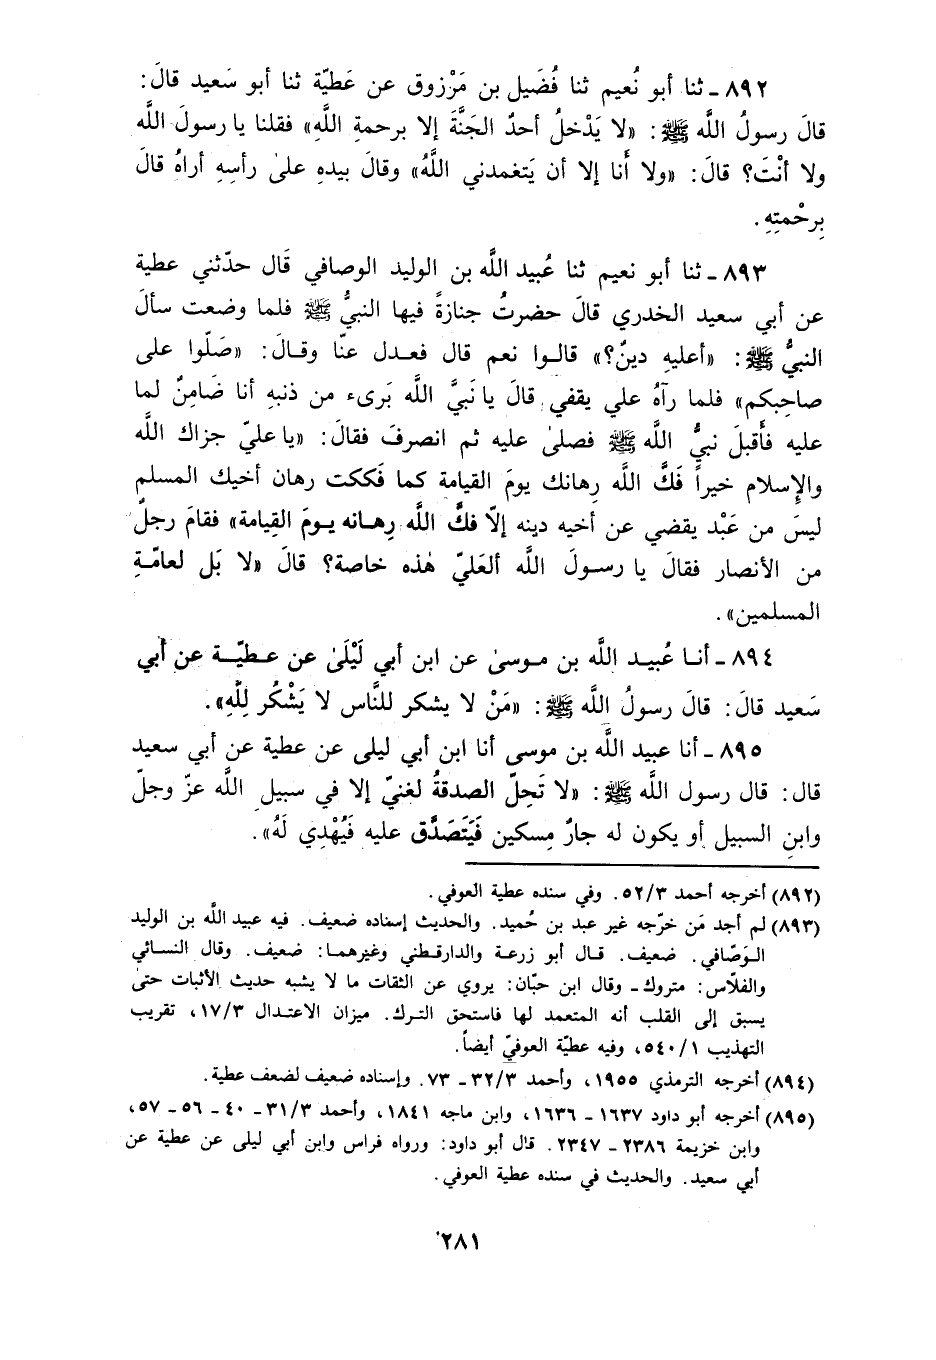 ٨٩٢ ـ ثنا أبو نُعيم ثنا فُضَيل بن مَرْزوق عن عَطيّة ثنا أبو سَعيد قالَ:
قالَ رسولُ اللَّه ﷺ: «لا يَدْخلُ أحدٌ الجَنَّةَ إلا برحمةِ اللَّهِ» فقلنا يا رسولَ اللَّه
ولا أنْتَ؟ قالَ: «ولا أَنا إلا أن يَتغمدني اللَّهُ» وقالَ بيدهِ علىٰ رأسِهِ أراهُ قالَ
بِرحْمتِهِ.
٨٩٣ ـ ثنا أبو نعيم ثنا عُبيد اللَّه بن الوليد الوصافي قَال حدّثني عطية
عن أبي سعيد الخدري قالَ حضرتُ جنازةً فيها النبيُّ ﷺ فلما وضعت سألَ
النبيُّ ﷺ: «أعليهِ دينٌ؟» قالوا نعم قال فعدل عنّا وقالَ: «صَلّوا على
صاحبكم» فلما رآهُ علي يقفي قالَ يا نَبيَّ اللَّه بَرىء من ذنبهِ أنا ضَامِنٌ لما
عليه فأَقبلَ نبيُّ اللَّه ﷺ فصلىٰ عليه ثم انصرفَ فقالَ: «يا عليّ جزاك اللَّه
والإِسلام خيراً فَكَّ اللَّه رِهانك يومَ القيامة كما فَككت رهان أخيك المسلم
ليسَ من عَبْد يقضي عن أخيه دينه إلّا فكَّ اللَّه رِهانه يومَ القِيامة» فقامَ رجلٌ
من الأنصار فقالَ يا رسولَ اللَّه ألعَليّ هٰذه خاصة؟ قالَ «لا بَل لعامّةِ
المسلمين».
٨٩٤ ـ أنا عُبيد اللَّه بن موسىٰ عن ابن أبي لَيْلَىٰ عن عطيّة عن أبي
سَعيد قالَ: قالَ رسولُ اللَّه ﷺ: «مَنْ لا يشكر للنَّاس لا يَشْكُر لِلَّهِ».
٨٩٥ ـ أنا عبيد اللَّه بن موسى أنا ابن أبي ليلى عن عطية عن أبي سعيد
قال: قال رسول اللَّه ﷺ: «لا تَحِلّ الصدقةُ لغنيّ إلا في سبيل اللَّه عزّ وجلّ
وابنِ السبيل أو يكون له جارٌ مِسكين فَيَتَصَدَّق عليه فَيُهْدِي لَهُ».
(٨٩٢) أخرجه أحمد ٥٢/٣. وفي سنده عطية العوفي.
(٨٩٣) لم أجد مَن خرّجه غير عبد بن حُميد. والحديث إسناده ضعيف. فيه عبيد اللَّه بن الوليد
الوَصّافي. ضعيف. قال أبو زرعة والدارقطني وغيرهما: ضعيف. وقال النسائي
والفلّاس: متروك ـ وقال ابن حبّان: يروي عن الثقات ما لا يشبه حديث الأثبات حتىٰ
يسبق إلى القلب أنه المتعمد لها فاستحق الترك. ميزان الاعتدال ١٧/٣، تقريب
التهذيب ٥٤٠/١، وفيه عطيّة العوفيّ أيضاً.
(٨٩٤) أخرجه الترمذي ١٩٥٥، وأحمد ٣٢/٣ ـ ٧٣. وإسناده ضعيف لضعف عطية.
(٨٩٥) أخرجه أبو داود ١٦٣٧ ـ ١٦٣٦، وابن ماجه ١٨٤١، وأحمد ٣١/٣ ـ ٤٠ ـ ٥٦ ـ ٥٧،
وابن خزيمة ٢٣٨٦ ـ ٢٣٤٧. قال أبو داود: ورواه فراس وابن أبي ليلى عن عطية عن
أبي سعيد. والحديث في سنده عطية العوفي.
٢٨١